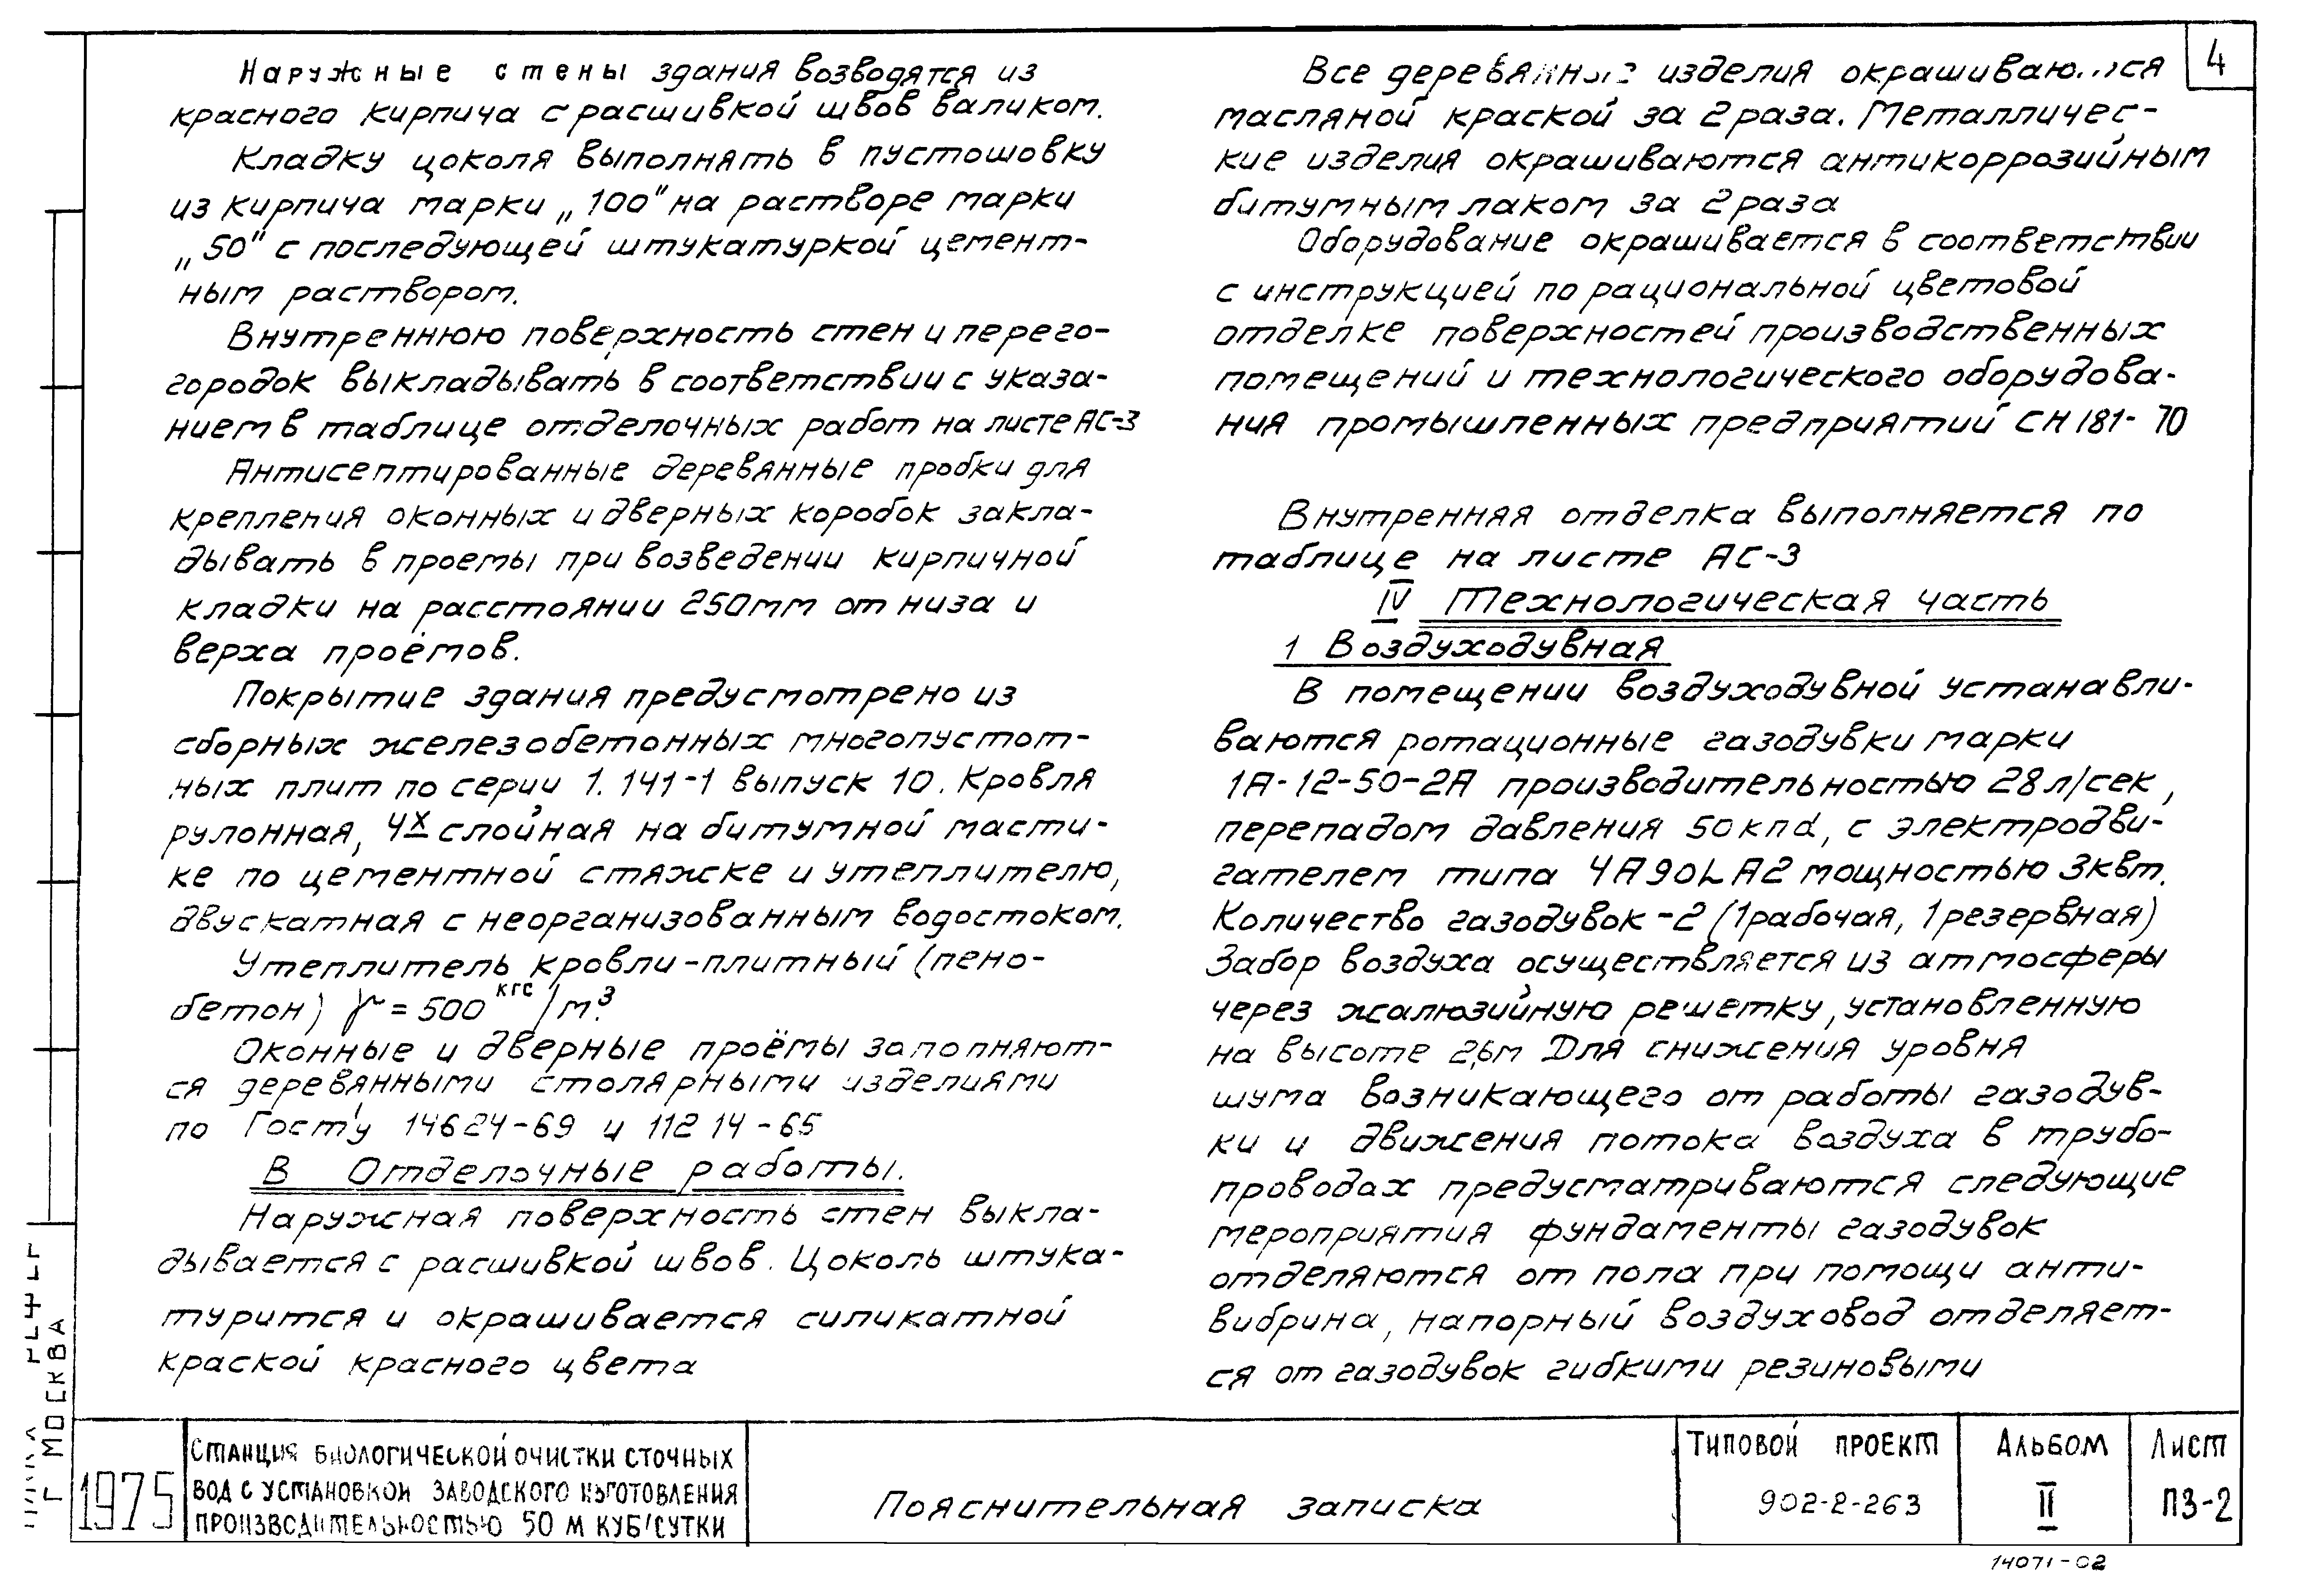 4
Наружные стены здания возводятся из
красного кирпича с расшивкой швов валиком.
Кладку цоколя выполнять в пустошовку
из кирпича марки „100" на растворе марки
„50" с последующей штукатуркой цемент-
ным раствором.
Внутреннюю поверхность стен и перего-
городок выкладывать в соответствии с указа-
нием в таблице отделочных работ на листе АС-3
Антисептированные деревянные пробки для
крепления оконных и дверных коробок закла-
дывать в проемы при возведении кирпичной
кладки на расстоянии 250мм от низа и
верха проёмов.
Покрытие здания предусмотрено из
сборных железобетонных многопустот-
ных плит по серии 1.141-1 выпуск 10. Кровля
рулонная, 4х слойная на битумной масти-
ке по цементной стяжке и утеплителю,
двускатная с неорганизованным водостоком.
Утеплитель кровли-плитный (пено-
бетон) γ = 500 кгс/м³.
Оконные и дверные проёмы заполняют-
ся деревянными столярными изделиями
по Гост'у 14624-69 и 11214-65
В Отделочные работы.
Наружная поверхность стен выкла-
дывается с расшивкой швов. Цоколь штука-
турится и окрашивается силикатной
краской красного цвета
Все деревянные изделия окрашиваются
масляной краской за 2 раза. Металличес-
кие изделия окрашиваются антикоррозийным
битумным лаком за 2 раза
Оборудование окрашивается в соответствии
с инструкцией по рациональной цветовой
отделке поверхностей производственных
помещений и технологического оборудова-
ния промышленных предприятий СН 181-70
Внутренняя отделка выполняется по
таблице на листе АС-3
IV Технологическая часть
1 Воздуходувная
В помещении воздуходувной устанавли-
ваются ротационные газодувки марки
1А-12-50-2А производительностью 28 л/сек,
перепадом давления 50 кпа, с электродви-
гателем типа 4А90LА2 мощностью 3квт.
Количество газодувок -2 (1рабочая, 1резервная)
Забор воздуха осуществляется из атмосферы
через жалюзийную решетку, установленную
на высоте 2,6м Для снижения уровня
шума возникающего от работы газодув-
ки и движения потока воздуха в трубо-
проводах предусматриваются следующие
мероприятия фундаменты газодувок
отделяются от пола при помощи анти-
вибрина, напорный воздуховод отделяет-
ся от газодувок гибкими резиновыми
г МОСКВА
1975
СТАНЦИЯ БИОЛОГИЧЕСКОЙ ОЧИСТКИ СТОЧНЫХ
ВОД С УСТАНОВКОЙ ЗАВОДСКОГО ИЗГОТОВЛЕНИЯ
ПРОИЗВОДИТЕЛЬНОСТЬЮ 50 М КУБ/СУТКИ
Пояснительная записка
ТИПОВОЙ ПРОЕКТ
902-2-263
АЛЬБОМ
II
ЛИСТ
ПЗ-2
14071-02